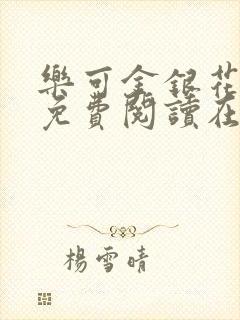 樂可金銀花
免費閱讀在
楊雪晴